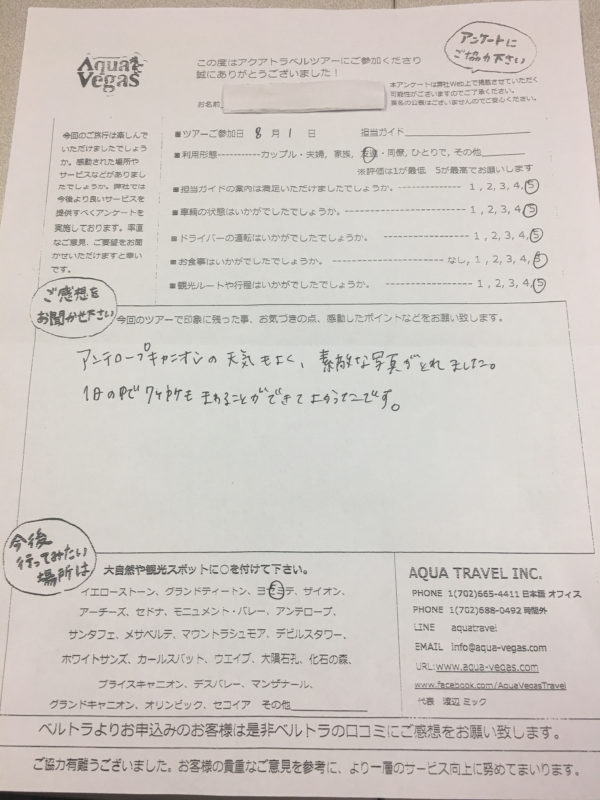 Aqua
Vegas
この度はアクアトラベルツアーにご参加くださり
誠にありがとうございました!
アンケートに
ご協力下さい
本アンケートは弊社Web上で掲載させていただく
可能性がございますのでご了承ください。
実名の公表はございませんのでご安心ください。
お名前
今回のご旅行は楽しんで
いただけましたでしょう
か。感動された場所や
サービスなどがありまし
たでしょうか。弊社では
今後より良いサービスを
提供すべくアンケートを
実施しております。率直
なご意見、ご要望をお聞
かせいただけますと幸い
です。
■ツアーご参加日 8 月 1 日 担当ガイド
■利用形態-----------カップル・夫婦, 家族, 友達・同僚, ひとりで, その他
※評価は1が最低 5が最高でお願いします
■担当ガイドの案内は満足いただけましたでしょうか。 1, 2, 3, 4, 5
■車輌の状態はいかがでしたでしょうか。 1, 2, 3, 4, 5
■ドライバーの運転はいかがでしたでしょうか。 1, 2, 3, 4, 5
■お食事はいかがでしたでしょうか。 なし, 1, 2, 3, 4, 5
■観光ルートや行程はいかがでしたでしょうか。 1, 2, 3, 4, 5
ご感想を
お聞かせ下さい
今回のツアーで印象に残った事、お気づきの点、感動したポイントなどをお願い致します。
アンテロープキャニオンの天気もよく、素敵な写真がとれました。
1日の中で7ヶ所もまわることができてよかったです。
今後
行ってみたい
場所は
大自然や観光スポットに○を付けて下さい。
イエローストーン、グランドティートン、ヨセミテ、ザイオン、
アーチーズ、セドナ、モニュメント・バレー、アンテロープ、
サンタフェ、メサベルテ、マウントラシュモア、デビルスタワー、
ホワイトサンズ、カールスバット、ウエイブ、大隕石孔、化石の森、
ブライスキャニオン、デスバレー、マンザナール、
グランドキャニオン、オリンピック、セコイア その他
AQUA TRAVEL INC.
PHONE 1(702)665-4411 日本語 オフィス
PHONE 1(702)688-0492 時間外
LINE aquatravel
EMAIL info@aqua-vegas.com
URL:www.aqua-vegas.com
www.facebook.com/AquaVegasTravel
代表 渡辺 ミック
ベルトラよりお申込みのお客様は是非ベルトラの口コミにご感想をお願い致します。
ご協力有難うございました。お客様の貴重なご意見を参考に、より一層のサービス向上に努めてまいります。